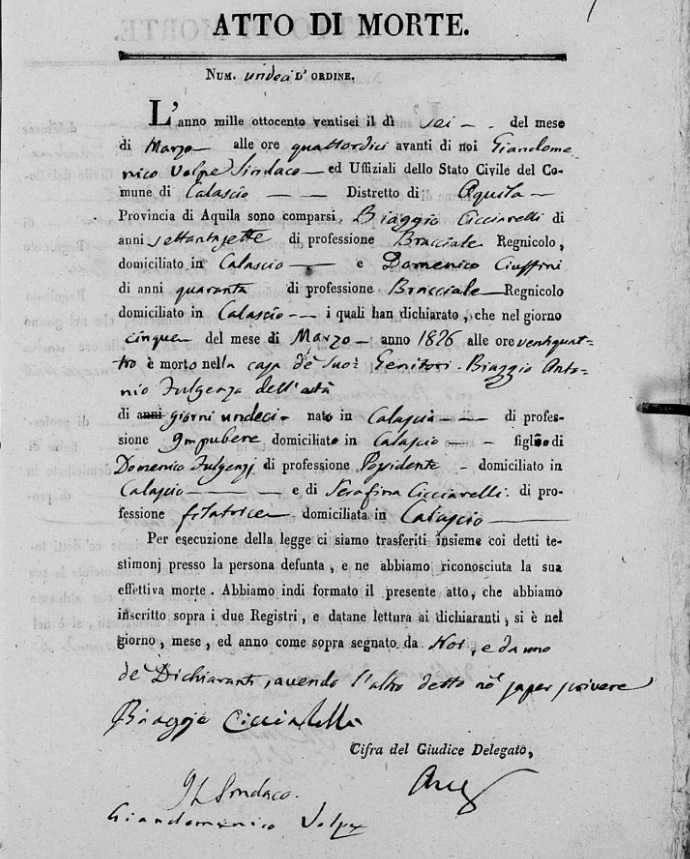 ATTO DI MORTE.
NUM. undeci D' ORDINE.
L'anno mille ottocento ventisei il dì sei - del mese
di Marzo alle ore quattordici avanti di noi Giandome-
nico Volpe Sindaco ed Uffiziali dello Stato Civile del Co-
mune di Calascio Distretto di Aquila
Provincia di Aquila sono comparsi Biaggio Cicciarelli di
anni settantasette di professione Bracciale Regnicolo,
domiciliato in Calascio e Domenico Ciuffini
di anni quaranta di professione Bracciale Regnicolo
domiciliato in Calascio i quali han dichiarato, che nel giorno
cinque del mese di Marzo anno 1826 alle ore ventiquat-
tro è morto nella casa de' suoi Genitori Biaggio Anto-
nio Fulgenza dell'età
di anni giorni undeci nato in Calascio di profes-
sione Impubere domiciliato in Calascio figlio di
Domenico Fulgenzj di professione Possidente domiciliato in
Calascio e di Serafina Cicciarelli di pro-
fessione filatrice domiciliata in Calascio
Per esecuzione della legge ci siamo trasferiti insieme coi detti te-
stimonj presso la persona defunta, e ne abbiamo riconosciuta la sua
effettiva morte. Abbiamo indi formato il presente atto, che abbiamo
inscritto sopra i due Registri, e datane lettura ai dichiaranti, si è nel
giorno, mese, ed anno come sopra segnato da Noi, e da uno
de' Dichiaranti, avendo l'altro detto nõ saper scrivere
Biaggio
Cifra del Giudice Delegato,
Il Sindaco
Giandomenico Volpe